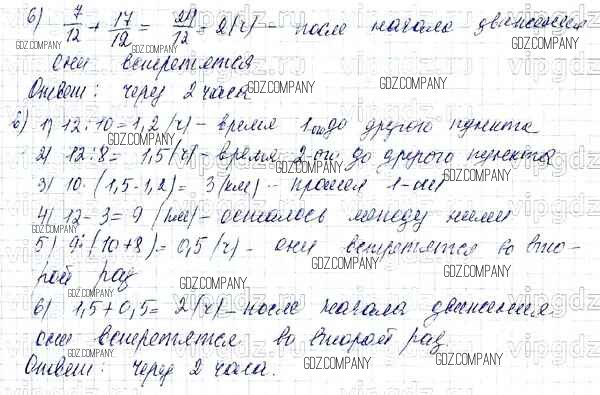 6) 7/12 + 17/12 = 24/12 = 2 (ч) - после начала движения
они встретятся
Ответ: через 2 часа
в) 1) 12:10 = 1,2 (ч) - время 1-ого до другого пункта
2) 12:8 = 1,5 (ч) - время 2-ого до другого пункта
3) 10·(1,5-1,2) = 3 (км) - прошел 1-ый
4) 12-3 = 9 (км) - осталось между ними
5) 9:(10+8) = 0,5 (ч) - они встретятся во вто-
рой раз
6) 1,5+0,5 = 2 (ч) - после начала движения
они встретятся во второй раз
Ответ: через 2 часа.
GDZ.COMPANY
vipgdz.ru